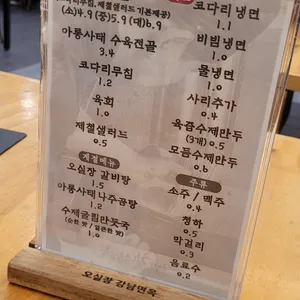 코다리무침,제철샐러드 기본제공)
(소)4.9 (중)5.9 (대)6.9
아롱사태 수육전골
3.4
코다리무침
1.2
육회
1.0
제철샐러드
0.5
계절메뉴
오실장 갈비탕
1.5
아롱사태나주곰탕
1.2
수제굴림만둣국
1.0
코다리냉면
1.1
비빔냉면
1.0
물냉면
1.0
사리추가
0.4
육즙수제만두
(3개) 0.5
모듬수제만두
0.6
주류
소주 / 맥주
0.4
청하
0.5
막걸리
0.3
음료수
0.2
오실장 강남면옥